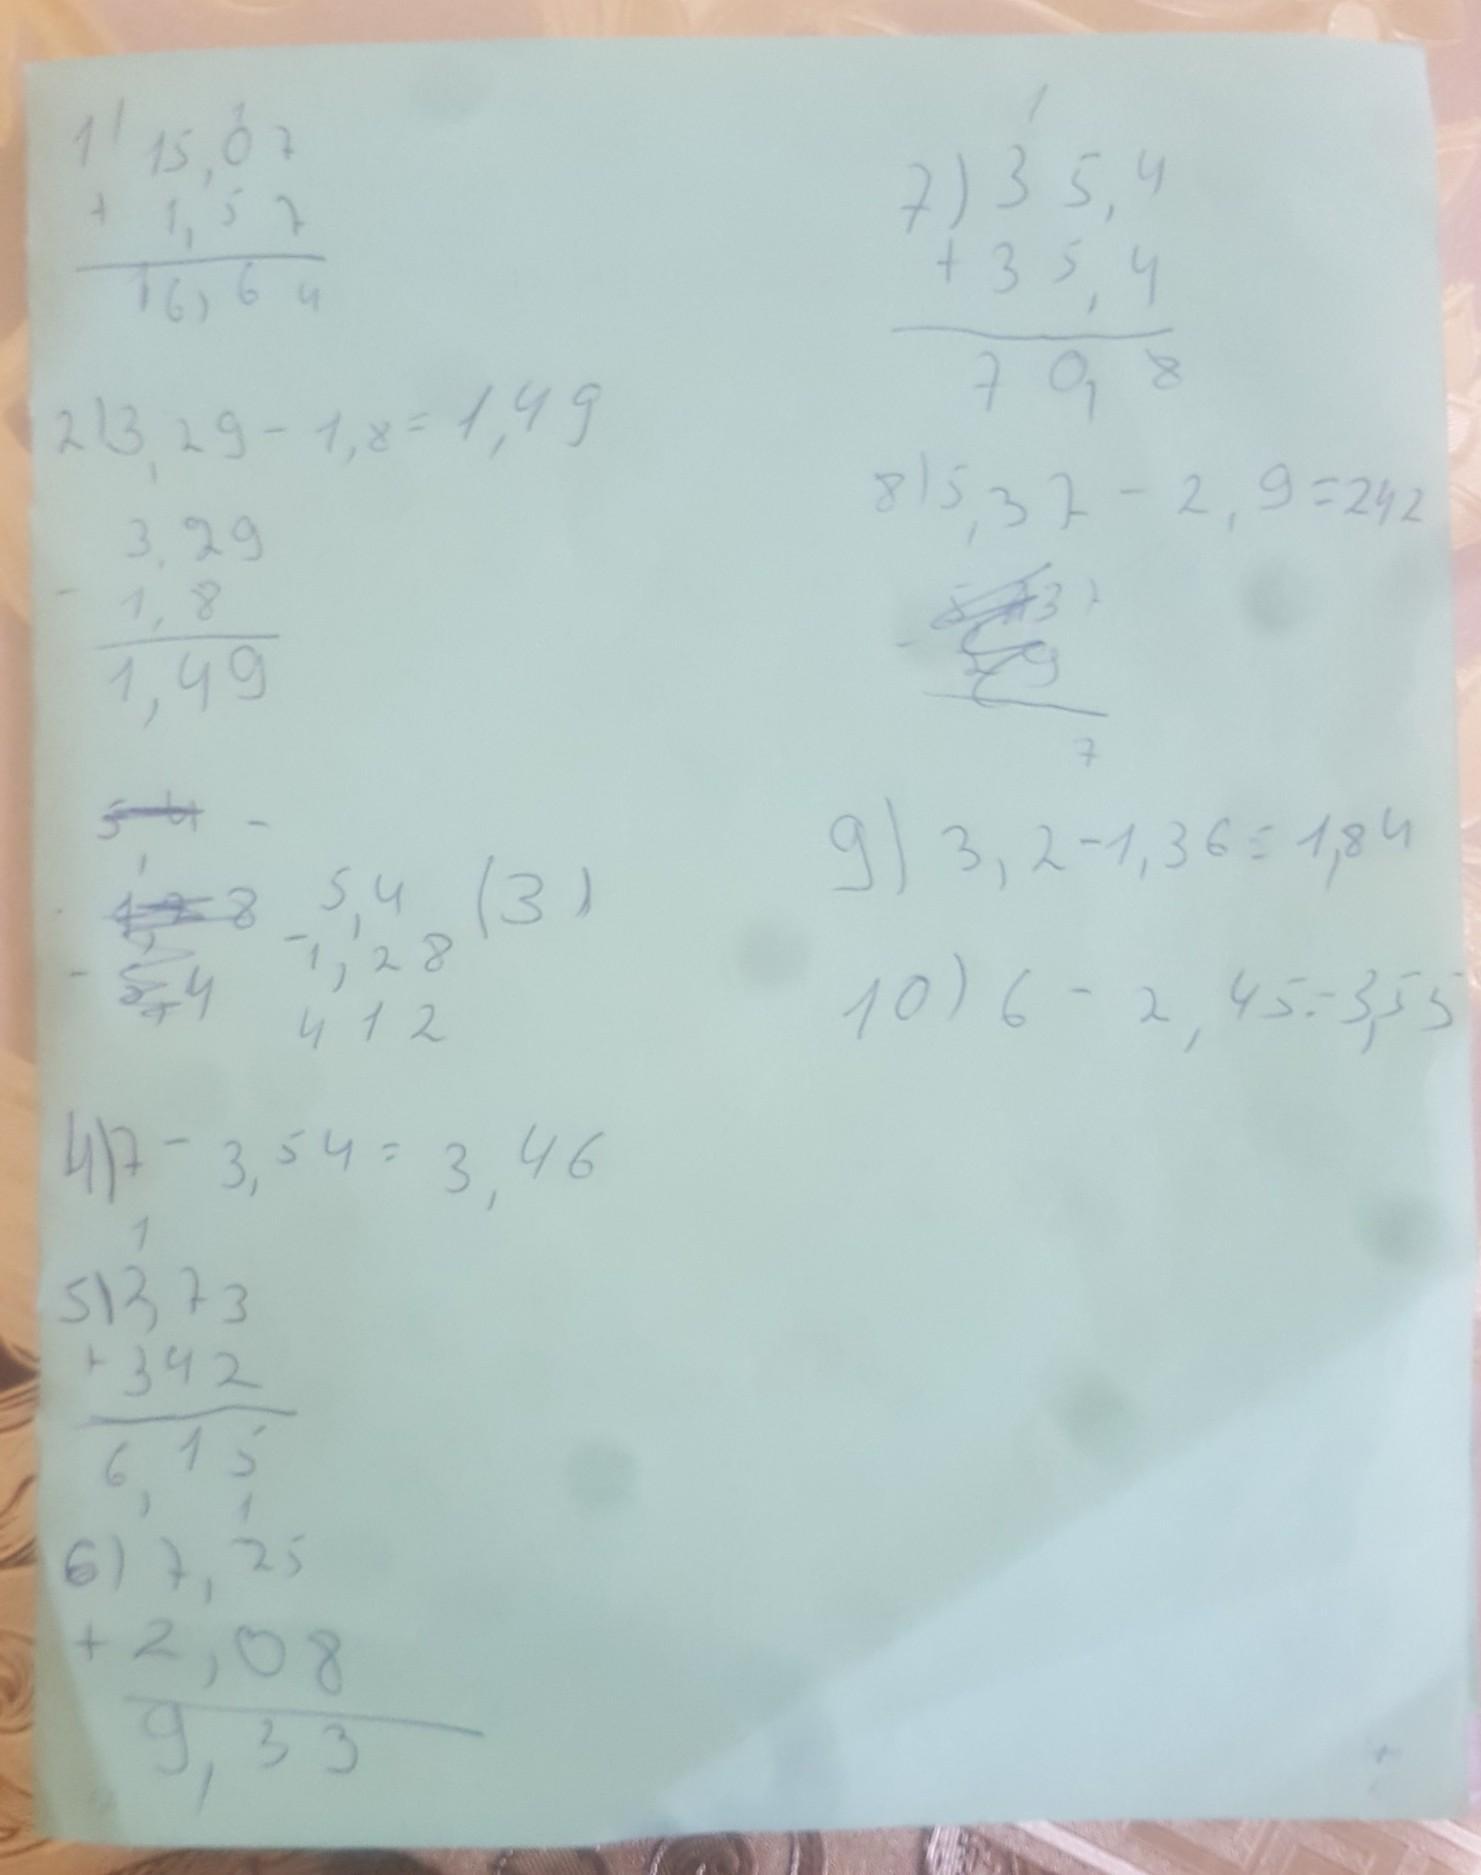 1) 15,07
+ 1,57
16,64
2) 3,29 - 1,8 = 1,49
3,29
- 1,8
1,49
5,4 (3)
- 1,28
4 1 2
4) 7 - 3,54 = 3,46
1
5) 2,73
+ 342
6,15
1
6) 7,25
+ 2,08
9,33
1
7) 35,4
+ 35,4
70,8
8) 5,37 - 2,9 = 242
7
9) 3,2 - 1,36 = 1,84
10) 6 - 2,45 = 3,55